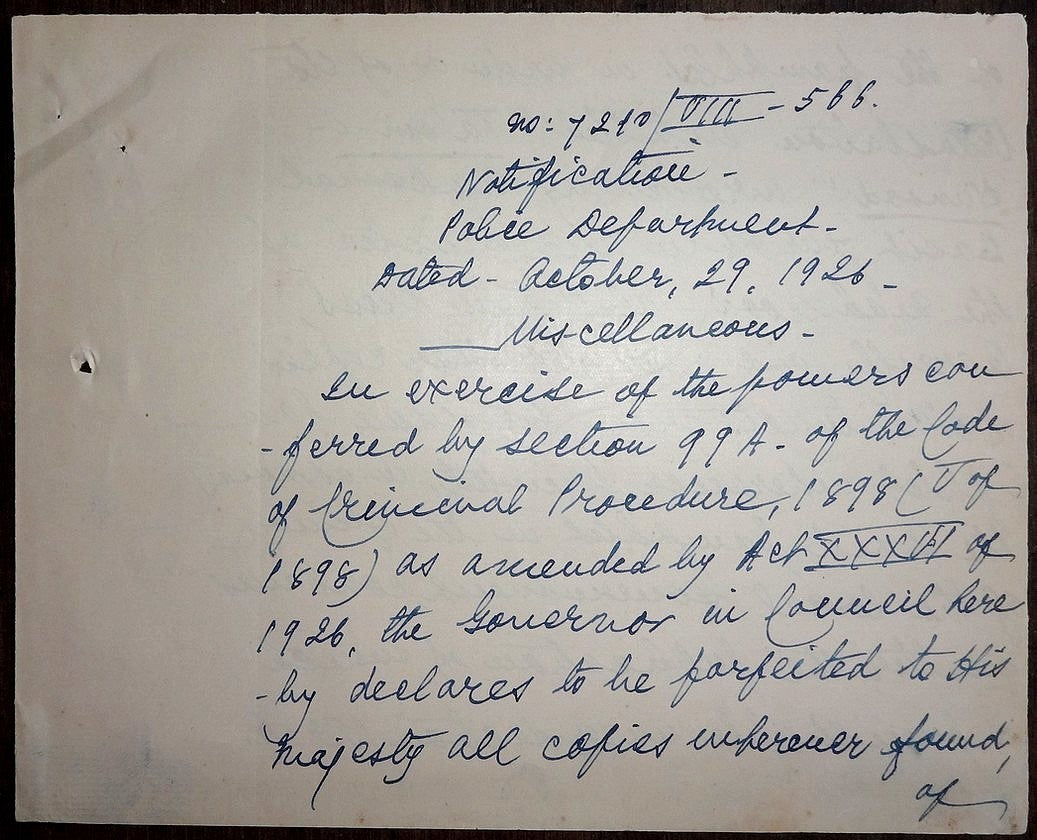 No: 7210/VIII - 566.
Notification -
Police Department -
Dated - October, 29, 1926 -
Miscellaneous -
In exercise of the powers con
- ferred by section 99A - of the Code
of Criminal Procedure, 1898 (V of
1898) as amended by Act XXXVI of
1926, the Governor in Council here
- by declares to be forfeited to His
Majesty all copies wherever found,
of